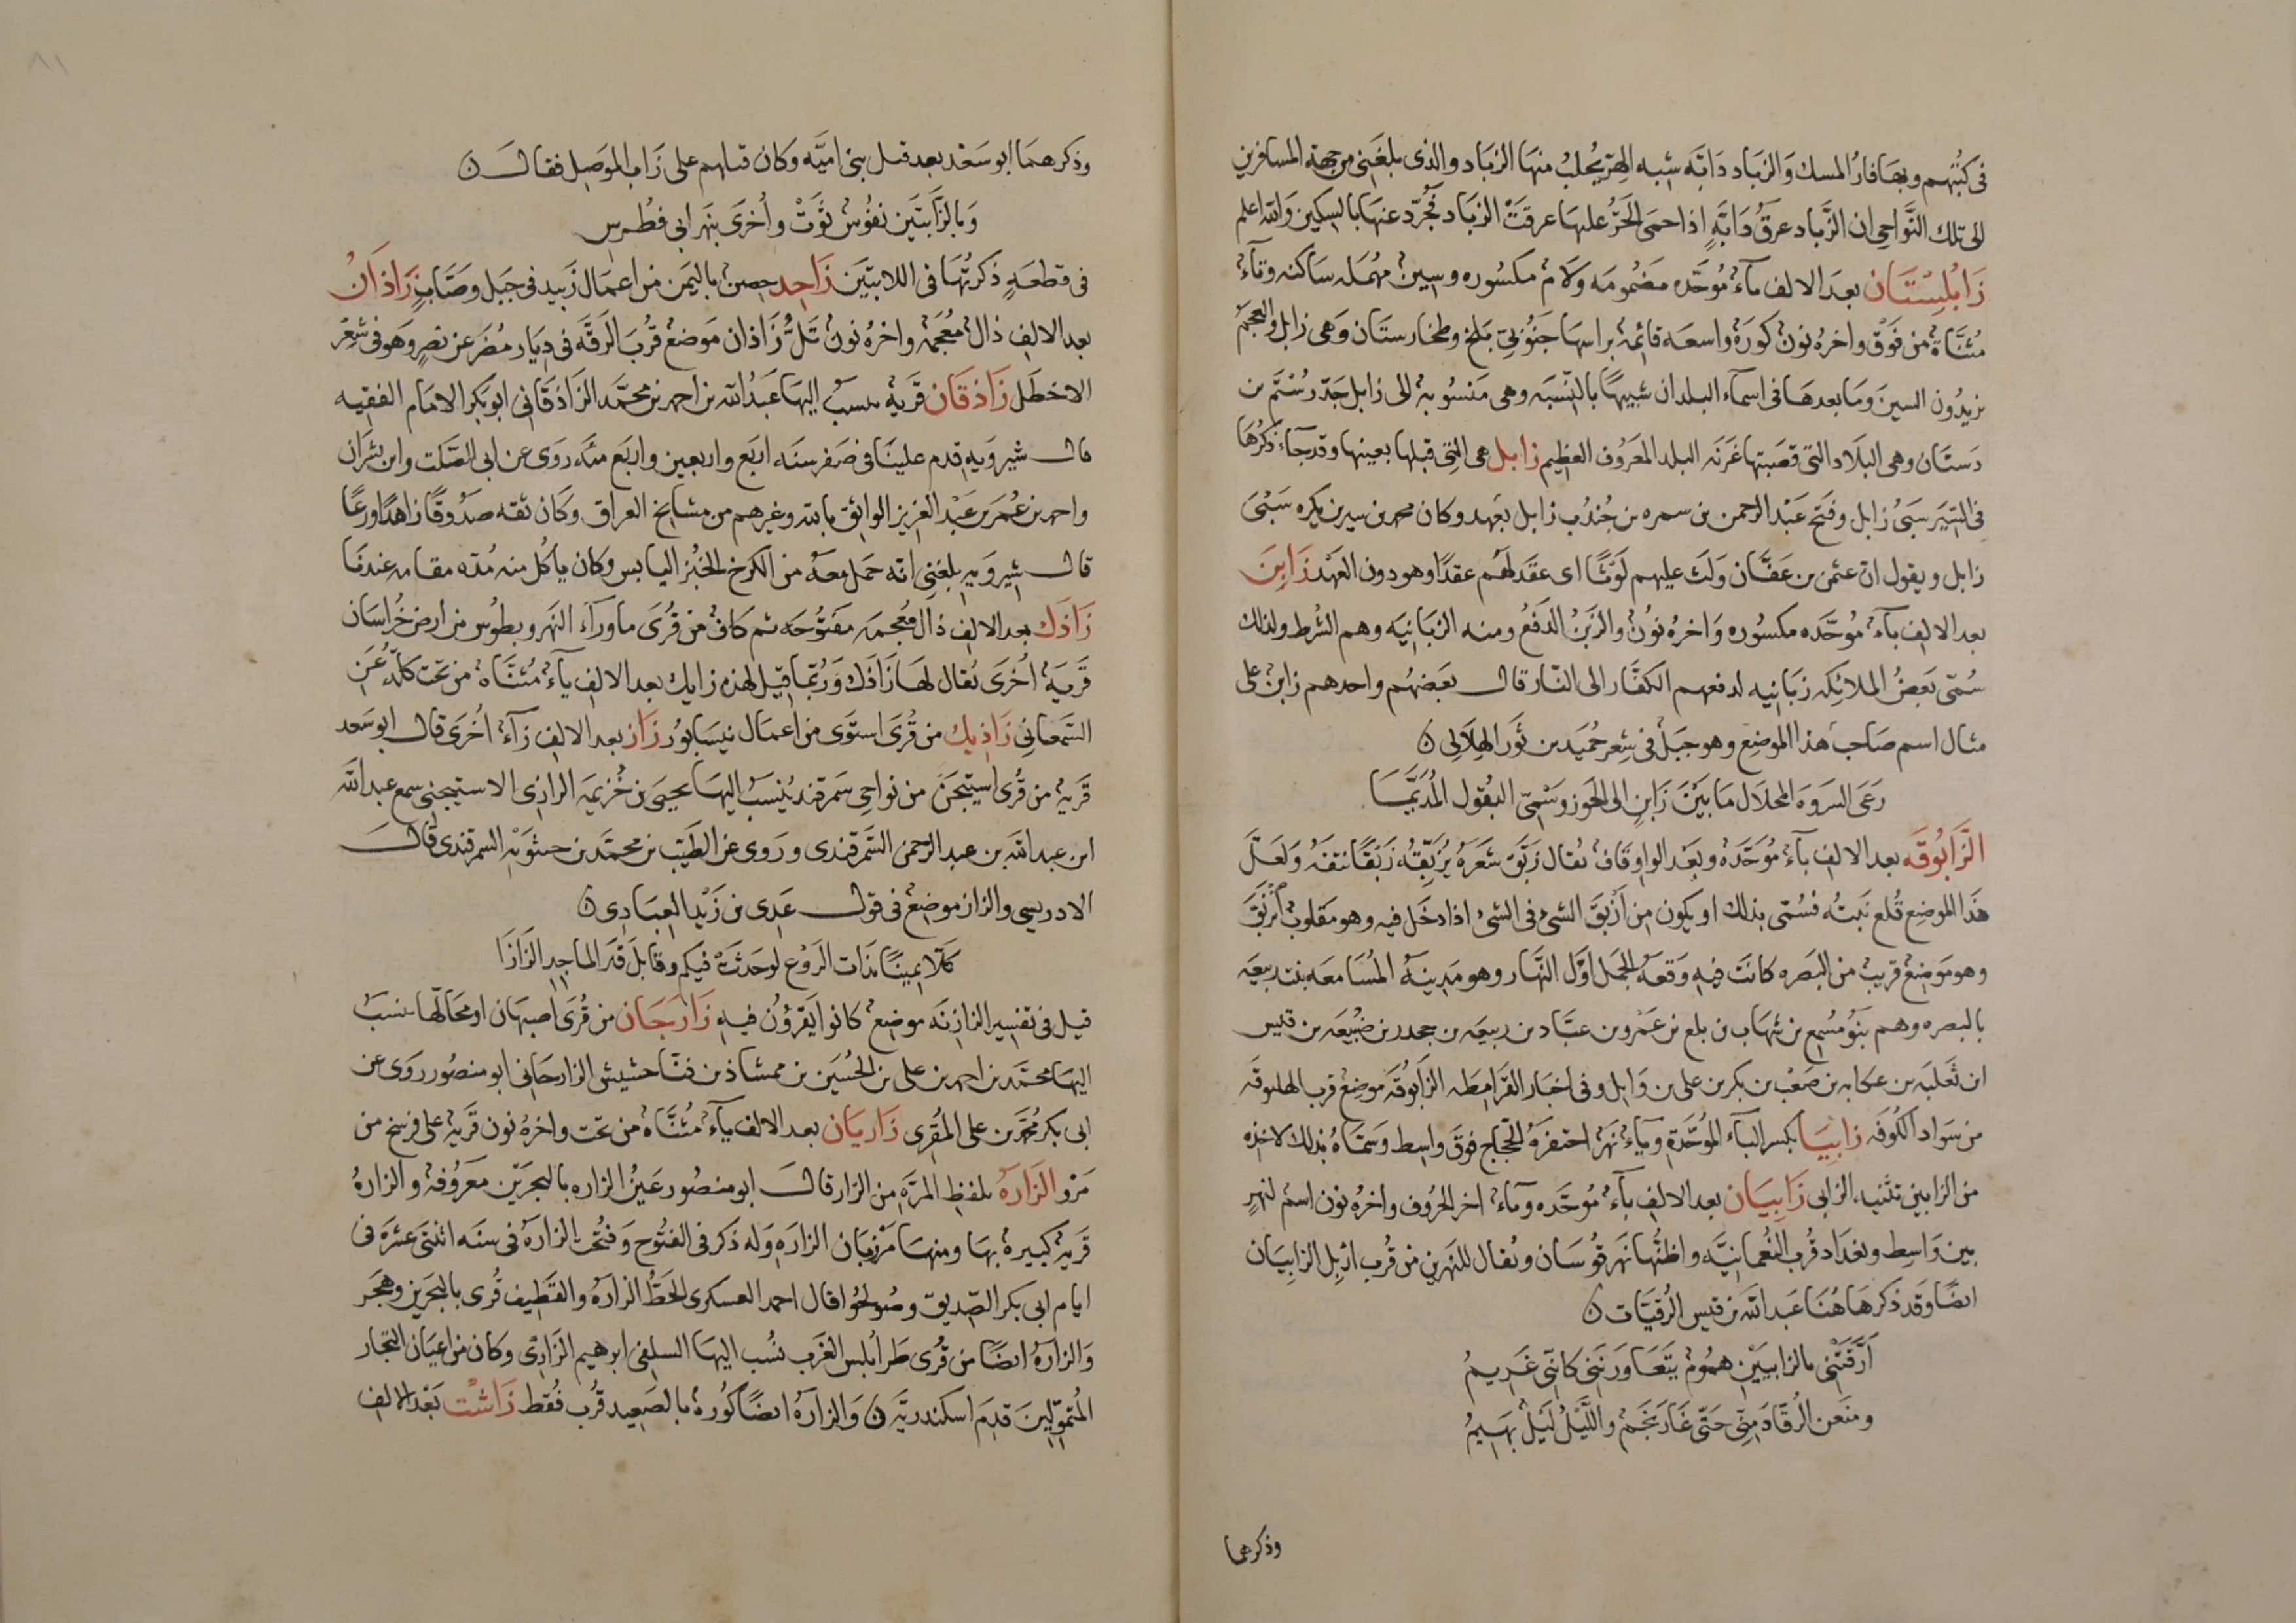 فى كتبهم وبها فار المسك والزباد دابّه شبه الهرّ يحلب منها الزباد والذى بلغنى من جهة المسافرين
الى تلك النّواحى ان الزّباد عرق دابّةٍ اذا حمى الحرّ عليها عرقت الزباد فجُرّد عنها بالسكين والله اعلم
زابُلِسْتَان بعد الالف باء مُوحّده مضمومه ولام مكسوره وسين مهمله ساكنه وتاء
مثنّاة من فوق واخره نون كورة واسعه قائمة براسها جنوبىّ بلخ وطخارستان وهى زابل والعجم
يزيدون السين وما بعدها فى اسماء البلدان شبيهًا بالنسبه وهى منسوبة الى زابل جدّ رستم بن
دستان وهى البلاد التى قصبتها غزنه البلد المعروف العظيم زابل هى التى قبلها بعينها وقد جاء ذكرها
فى السّير سبىُ زابل وفتح عبد الرحمن بن سمره بن جندب زابل بعهد وكان محمد بن سيرين يكره سبى
زابل ويقول ان عثمن بن عفّان ولث عليهم لوثًا اى عقد لهم عقدًا وهو دون العهد زابن
بعد الالف باء موحّده مكسوره واخره نون والزبن الدفع ومنه الزبانيه وهم الشرط ولذلك
سُمّى بعض الملائكه زبانيه لدفعهم الكفّار الى النّار قال بعضهم واحدهم زابن على
مثال اسم صاحب هذا الموضع وهو جبل فى شعر حميد بن ثور الهلالى ن
رعى السروه المحلال ما بين زابنٍ الى الخور وسمىّ البقول المديّما
الزابوقه بعد الالف باء موحّده وبعد الواو قاف يقال زبق شعره يزبقه زبقًا نتفه ولعلّ
هذا الموضع قُلع نبتُه فسُمّى بذلك او يكون من انزبق الشىء فى الشىء اذا دخل فيه وهو مقلوب انزقب
وهو موضع قريب من البصره كانت فيه وقعة الجمل اوّل النّهار وهو مدينة المسامعه بنت ربيعه
بالبصره وهم بنو مسمع بن شهاب بن بلع بن عمرو بن عبّاد بن ربيعه بن جحدر بن ضبيعه بن قيس
ابن ثعلبه بن عكابه بن صعب بن بكر بن على بن وايل وفى اخبار القرامطه الزابوقه موضع قرب الهلوقه
من سواد الكوفه زابيا بكسر الباء الموحّدة وياء نهر احتفره الحجّاج فوق واسط وسمّاه بذلك لاخذه
من الزابين تثنيه الزابى زابيان بعد الالف باء موحّده وياء اخر الحروف واخره نون اسم لنهرٍ
بين واسط وبغداد قُرب النُعمانيّه واظنّها نهر قوسان ويقال للنهرين من قرب اربل الزابيان
ايضًا وقد ذكرها هنا عبد الله بن قيس الرُقيّات ن
ارّقتنى بالزابيين هموم يتعاورننى كانّى غريمُ
ومنعن الرُقاد منّى حتّى غار نجم والليل ليل بهيمُ
وذكرهما
وذكرهما ابو سعْد بعد قتل بنى اميّه وكان قتلهم على زاب الموصل فقال ن
وبالزّابيَين نفُوس ثوَتْ واُخرى بنهر ابى فطرس
فى قطعةٍ ذكرتُها فى اللابتين زاجد حصن باليمن من اعمال زبيد فى جبل وصابٍ زاذان
بعد الالف ذال معجمة واخره نون تلّ زاذان موضع قرب الرقّه فى ديار مضر عن نصر وهو فى شعر
الاخطل زاذقان قرية ينسب اليها عبد الله بن احمد بن محمّد الزاذقانى ابو بكر الامام الفقيه
قال شيرويه قدم علينا فى صفر سنه اربع واربعين واربع مئه روى عن ابى الصّلت وابن بشران
واحمد بن عمر بن عبد العزيز الواثق بالله وغيرهم من مشايخ العراق وكان ثقه صدُوقًا زاهدًا ورعًا
قال شيرويه بلغنى انّه حمل معه من الكرخ الخبز اليابس وكان ياكل منه مدّه مقامه عندنا
زاذك بعد الالف ذال معجمه مفتوحه ثم كاف من قرى ماوراء النهر وبطوس من ارض خراسان
قرية اخرى يقال لها زاذك وربّما قيل لهذه زايك بعد الالف ياء مثنّاة من تحت كلّه عن
السّمعانى زاذيك من قرى استوى من اعمال نيسابور زاز بعد الالف زاء اخرى قال ابو سعد
قرية من قرى اشتيخن من نواحى سمرقند يُنسب اليها يحيى بن خُزيمه الزازى الاستيخنى سمع عبد الله
ابن عبد الله بن عبد الرحمن السّمرقندى وروى عن الطيّب بن محمّد بن حشويه السمرقندى قال
الادريسى والزاز موضع فى قول عدى بن زيد العبادى ن
كلّا يمينًا بذات الرّوع لو حدثت فيكم وقابل قبر الماجد الزازا
قيل فى تفسير الزاز انه موضع كانوا يقرؤن فيه زارجان من قُرى اصبهان او محالّها ينسب
اليها محمّد بن احمد بن على بن الحُسَين بن ممشاذ بن فنّاحشيش الزارجانى ابو منصور روى عن
ابى بكر محمّد بن على المقرى زاريان بعد الالف ياء مثنّاه من تحت واخره نون قرية على فرسخ من
مرو الزارة بلفظ المرّه من الزار قال ابو منصور عينُ الزاره بالبحرين معروفة والزارة
قرية كبيرة بها ومنها مرزبان الزاره وله ذكر فى الفتوح وفُتحت الزارة فى سنه اثنتى عشرة فى
ايام ابى بكر الصّديق وصُولحوا قال احمد العسكرى الخطّ الزارة والقطيف قُرى بالبحرين وهجر
والزارة ايضًا من قُرى طرابلس الغرب نُسب اليها السلفى ابرهيم الزارى وكان من اعيان التجار
المُتموّلين قدم اسكندريّه ن والزارة ايضًا كورة بالصعيد قرب قُفط زاشت بعد الالف